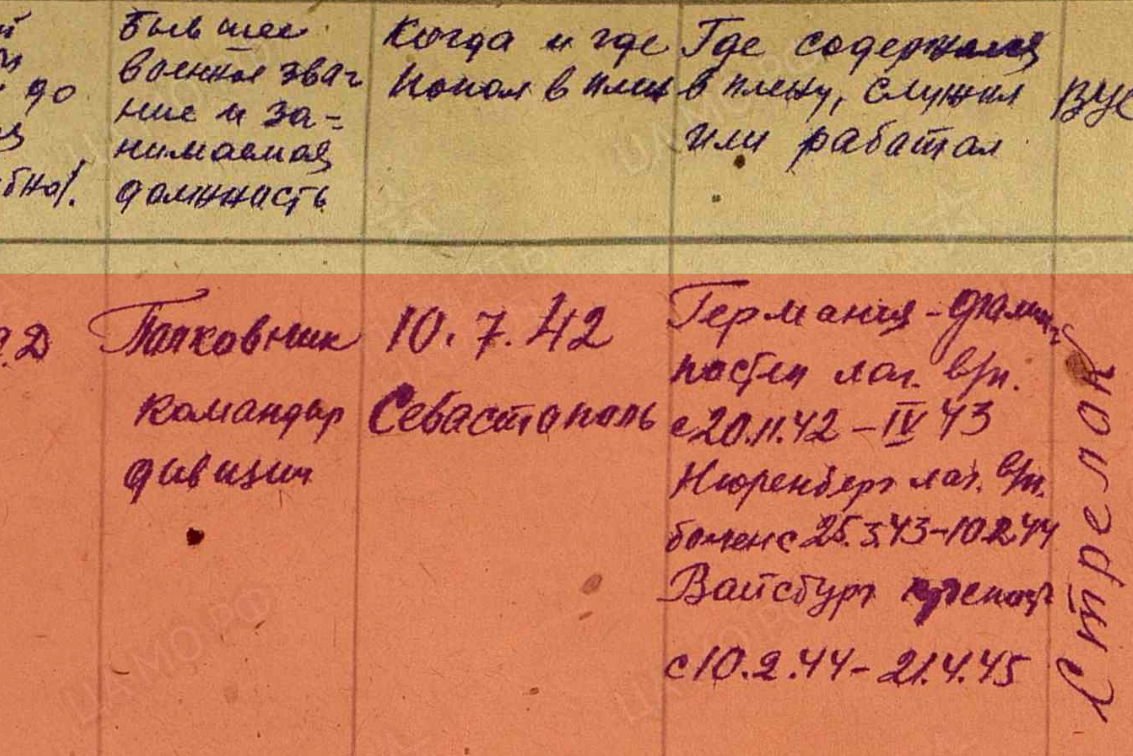 Бывшее
военное зва-
ние и за-
нимаемая
должность
Когда и где
попал в плен
Где содержался
в плену, служил
или работал
ВУС
до
Полковник
командир
дивизии
10.7.42
Севастополь
Германия -
лаг. в/п.
с 20.11.42 – IV 43
Нюренберг лаг. в/п.
болен с 25.3.43-10.2.44
Вайсбург
с 10.2.44 - 21.4.45
Стрелок
ЦАМО РФ